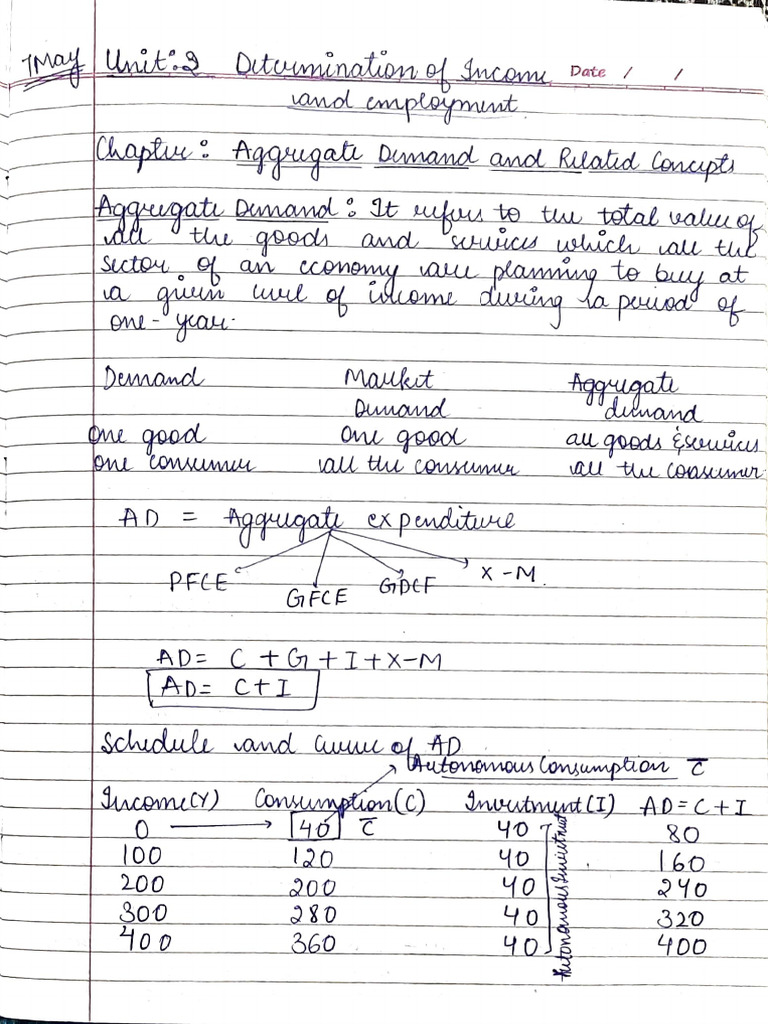 7 May Unit:2 Determination of Income Date / /
and employment
Chapter: Aggregate Demand and Related Concepts
Aggregate Demand: It refers to the total value of
all the goods and services which all the
sector of an economy are planning to buy at
a given level of income during a period of
one-year.
Demand Market Aggregate
Demand demand
One good One good all goods & services
one consumer all the consumer all the consumer
AD = Aggregate expenditure
PFCE GFCE GDCF X-M.
AD= C + G + I + X-M
AD= C+I
Schedule and Curve of AD
Autonomous Consumption C̅
Income(Y) Consumption(C) Investment(I) AD=C+I
0 40 C̅ 40 80
100 120 40 160
200 200 40 240
300 280 40 320
400 360 40 400
Autonomous Investment